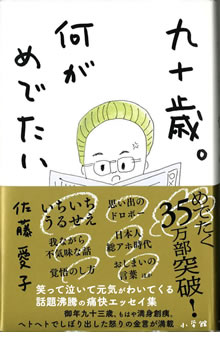 九十歳。
何が
めでたい
佐藤愛子
めでたく
35万部突破!
思い出の
ドロボー
日本人
総アホ時代
おしまいの
言葉 ほか
いちいち
うるせえ
我ながら
不気味な話
覚悟のし方
笑って泣いて元気がわいてくる
話題沸騰の痛快エッセイ集
御年九十三歳。もはや満身創痍。
ヘトヘトでしぼり出した怒りの金言が満載
小学館